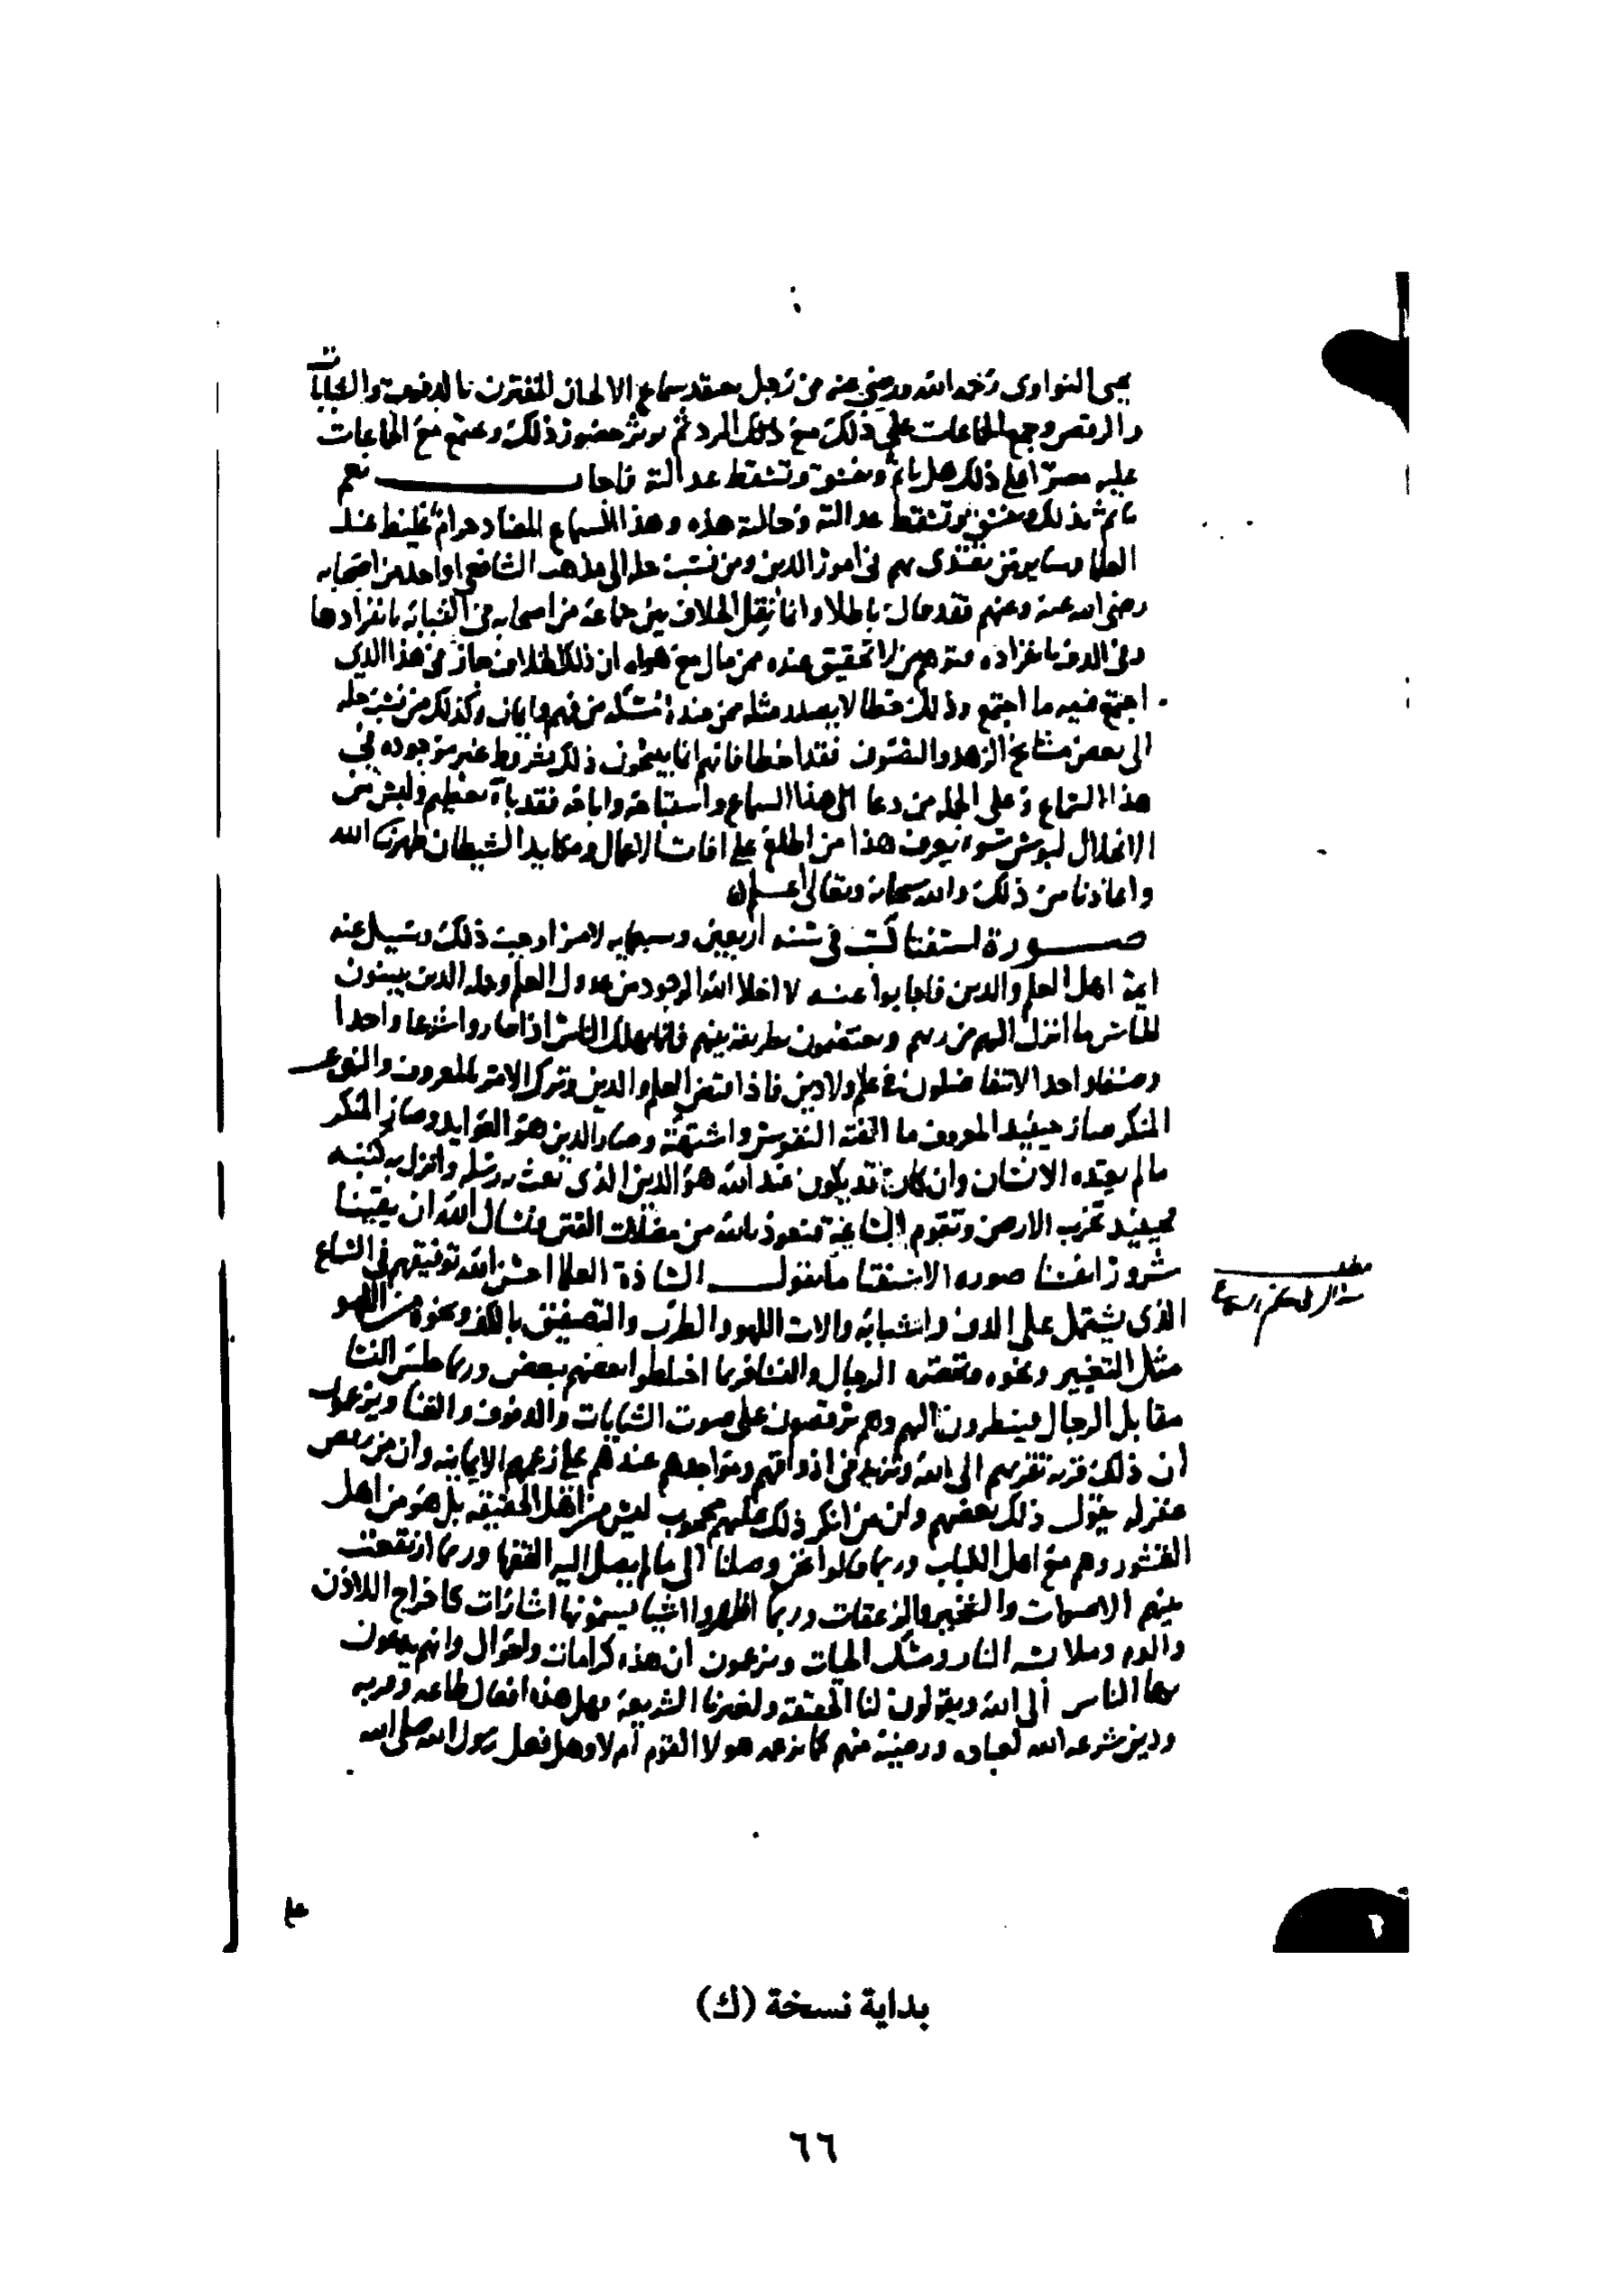 يحيى النواوي رحمه الله ورضي عنه من رجل يعتقد سماع الالحان المقترن بالدفوف والشبابات
والرقص وجمع الجماعات على ذلك مع ذلك المرد ثم يوثر حضور ذلك ويجتمع مع الجماعات
عليه مصرا على ذلك هل ياثم ويفسق وتسقط عدالته فاجاب نعم
ياثم بذلك ويفسق وتسقط عدالته وحالته هذه وهذا السماع المعتاد حرام غليظ عند
العلما وساير من يقتدى بهم في امور الدين ومن نسب حله الى مذهب الشافعي او احد من اصحابه
رضي الله عنه وعنهم فقد قال باطلا وانما نقل الخلاف بين جماعة من اصحابه في الشبابه بانفرادها
وفي الدف بانفراده فتوهم من لا تحقيق عنده ممن مال مع هواه ان ذلك الخلاف جار في هذا الذي
اجتمع فيه ما اجتمع وذلك خطا لا يصدر مثله ممن عنده مسكه من فهم وايمان وكذلك من نسب حله
الى بعض مشايخ الزهد والتصوف فقد اخطا فانهم انما يبيحون ذلك بشروط غير موجوده في
هذا السماع وعلى الجمله من دعا الى هذا السماع واستباحه واباحه فقد باء بعظيم ولبس من
الانحلال لبوس سوء يعرف هذا من اطلع على افات الاعمال ومكايد الشيطان طهرنا الله
واعاذنا من ذلك والله سبحانه وتعالى اعلم
صورة استفتا كتب في سنة اربعين وسبعمايه لامر اوجب ذلك وسيل عنه
ايمة اهل العلم والدين فاجابوا عنه لا اخلا الله الوجود من عدول العلم وحملة الدين يبينون
للناس ما انزل اليهم من ربهم ويقتفون طريقة نبيهم فانما يهلك الناس اذا صاروا شرعا واحدا
وصنفا واحدا لا يتفاضلون في علم ولا دين فاذا انتقض العلم والدين وترك الامر بالمعروف والنهي عن
المنكر صار حينيذ المعروف ما الفته النفوس واشتهته وصار الدين هو العوايد وصار المنكر
ما لم يعتده الانسان وان كان قد يكون عند الله هو الدين الذي بعث به رسله وانزل به كتبه
فحينيذ تخرب الارض وتقوم الساعة فنعوذ بالله من مضلات الفتن ونسال الله ان يقينا
شرور انفسنا صوره الاستفتا ما تقول السادة العلما احسن الله توفيقهم في السماع
الذي يشتمل على الدف والشبابه والات اللهو والطرب والتصفيق بالكف ونحوه من اللهو
مثل التغبير ونحوه ويحضره الرجال والنسا فربما اختلطوا بعضهم ببعض وربما جلس النسا
مقابل الرجال فينظرون اليهم وهم يرقصون على صوت الشبابات والدفوف والغنا ويزعمون
ان ذلك قربه تقربهم الى الله وتزيد في اذواقهم ومواجدهم عندهم على زعمهم الايمانيه وان من رقص
غفر له يقول ذلك بعضهم وان من انكر ذلك عليهم محجوب ليس من اهل الحقيقه بل هو من اهل
القشور وهم مع اهل اللباب وربما قالوا نحن وصلنا الى ما لم يصل اليه الفقها وربما ارتفعت
بينهم الاصوات والشخير والزعقات وربما اظهروا اشيا يسمونها اشارات كاخراج اللاذن
والدم وملابسة النار ومسك الحيات ويزعمون ان هذه كرامات واحوال وانهم يدعون
بها الناس الى الله ويقولون لنا الحقيقة ولغيرنا الشريعة فهل هذه افعال طاعه وقربه
ودين شرعه الله لعباده ورضيه منهم كما يزعم هولا القوم ام لا وهل فعل رسول الله صلى الله
بداية نسخة (ك)
٦٦